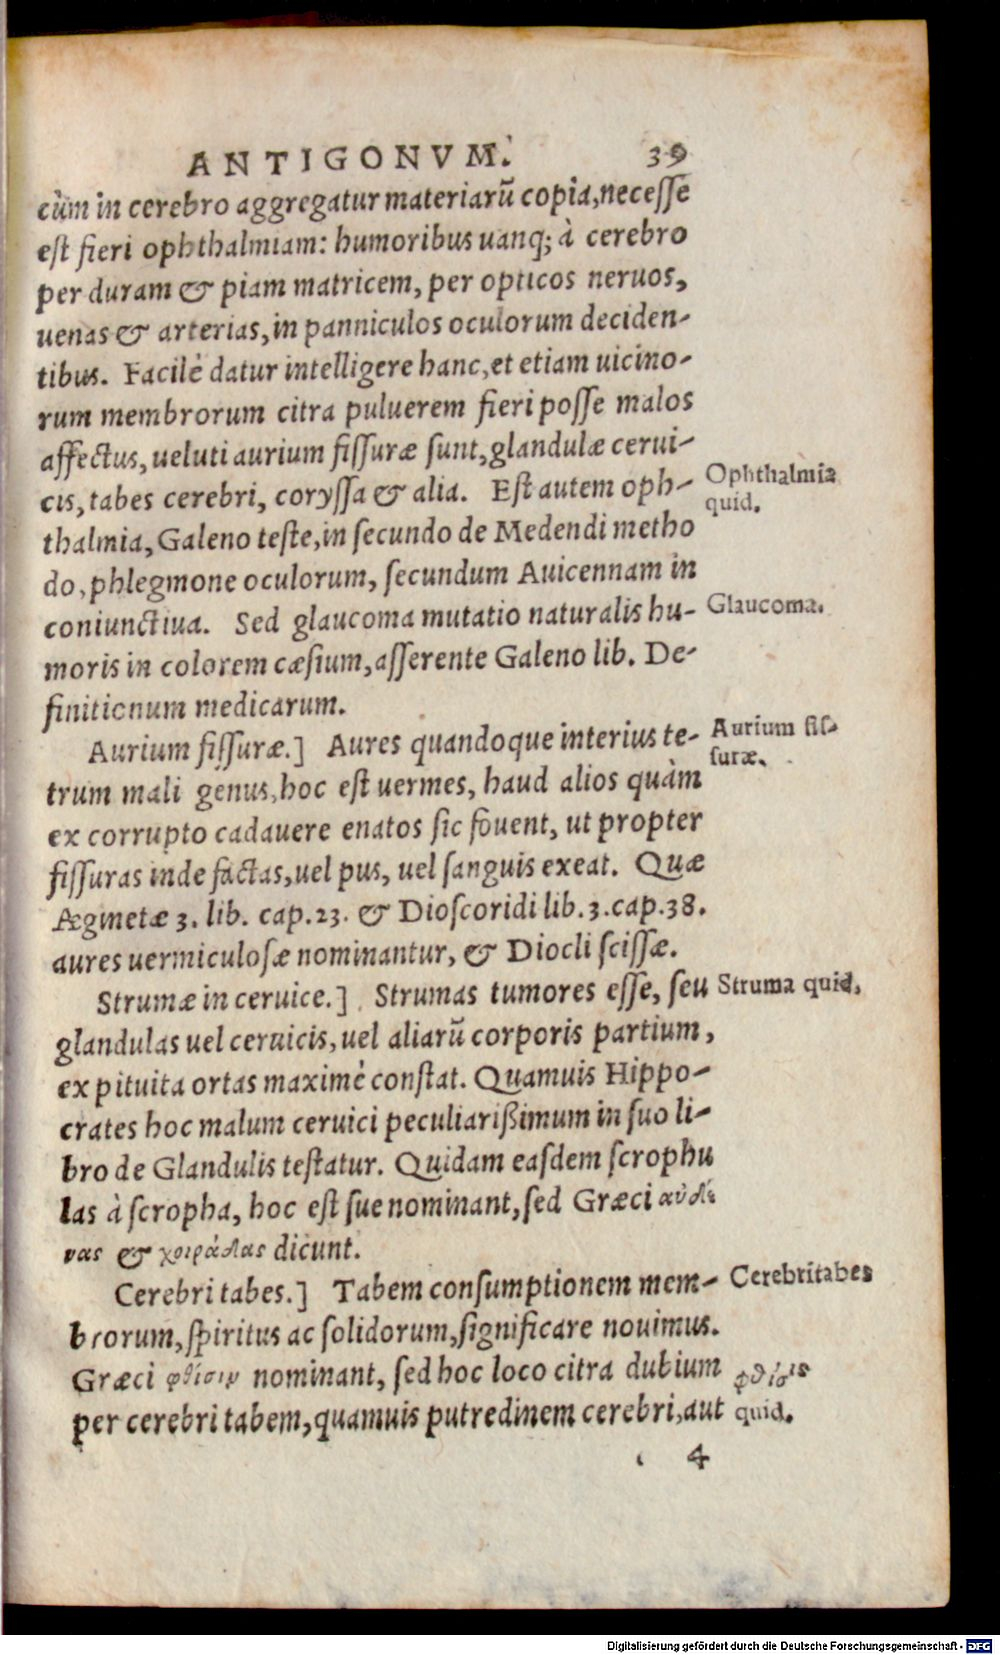 ANTIGONVM. 39
cùm in cerebro aggregatur materiarũ copia, necesse
est fieri ophthalmiam: humoribus uanq; à cerebro
per duram & piam matricem, per opticos neruos,
uenas & arterias, in panniculos oculorum deciden-
tibus. Facilè datur intelligere hanc, et etiam uicino-
rum membrorum citra puluerem fieri posse malos
affectus, ueluti aurium fissuræ sunt, glandulæ cerui-
cis, tabes cerebri, coryssa & alia. Est autem oph-
Ophthalmia
quid.
thalmia, Galeno teste, in secundo de Medendi metho
do, phlegmone oculorum, secundum Auicennam in
coniunctiua. Sed glaucoma mutatio naturalis hu-
Glaucoma.
moris in colorem cæsium, asserente Galeno lib. De-
finitionum medicarum.
Aurium fissuræ.] Aures quandoque interius te-
Aurium fis-
suræ.
trum mali genus, hoc est uermes, haud alios quàm
ex corrupto cadauere enatos sic fouent, ut propter
fissuras inde factas, uel pus, uel sanguis exeat. Quæ
Æginetæ 3. lib. cap. 23. & Dioscoridi lib. 3. cap. 38.
aures uermiculosæ nominantur, & Diocli scissæ.
Strumæ in ceruice.] Strumas tumores esse, seu
Struma quid.
glandulas uel ceruicis, uel aliarũ corporis partium,
ex pituita ortas maximè constat. Quamuis Hippo-
crates hoc malum ceruici peculiarißimum in suo li-
bro de Glandulis testatur. Quidam easdem scrophu
las à scropha, hoc est sue nominant, sed Græci
νας & χοιράδας dicunt.
Cerebri tabes.] Tabem consumptionem mem-
Cerebri tabes
brorum, spiritus ac solidorum, significare nouimus.
Græci φθίσιν nominant, sed hoc loco citra dubium
φθίσις
quid.
per cerebri tabem, quamuis putredinem cerebri, aut
4
Digitalisierung gefördert durch die Deutsche Forschungsgemeinschaft - DFG